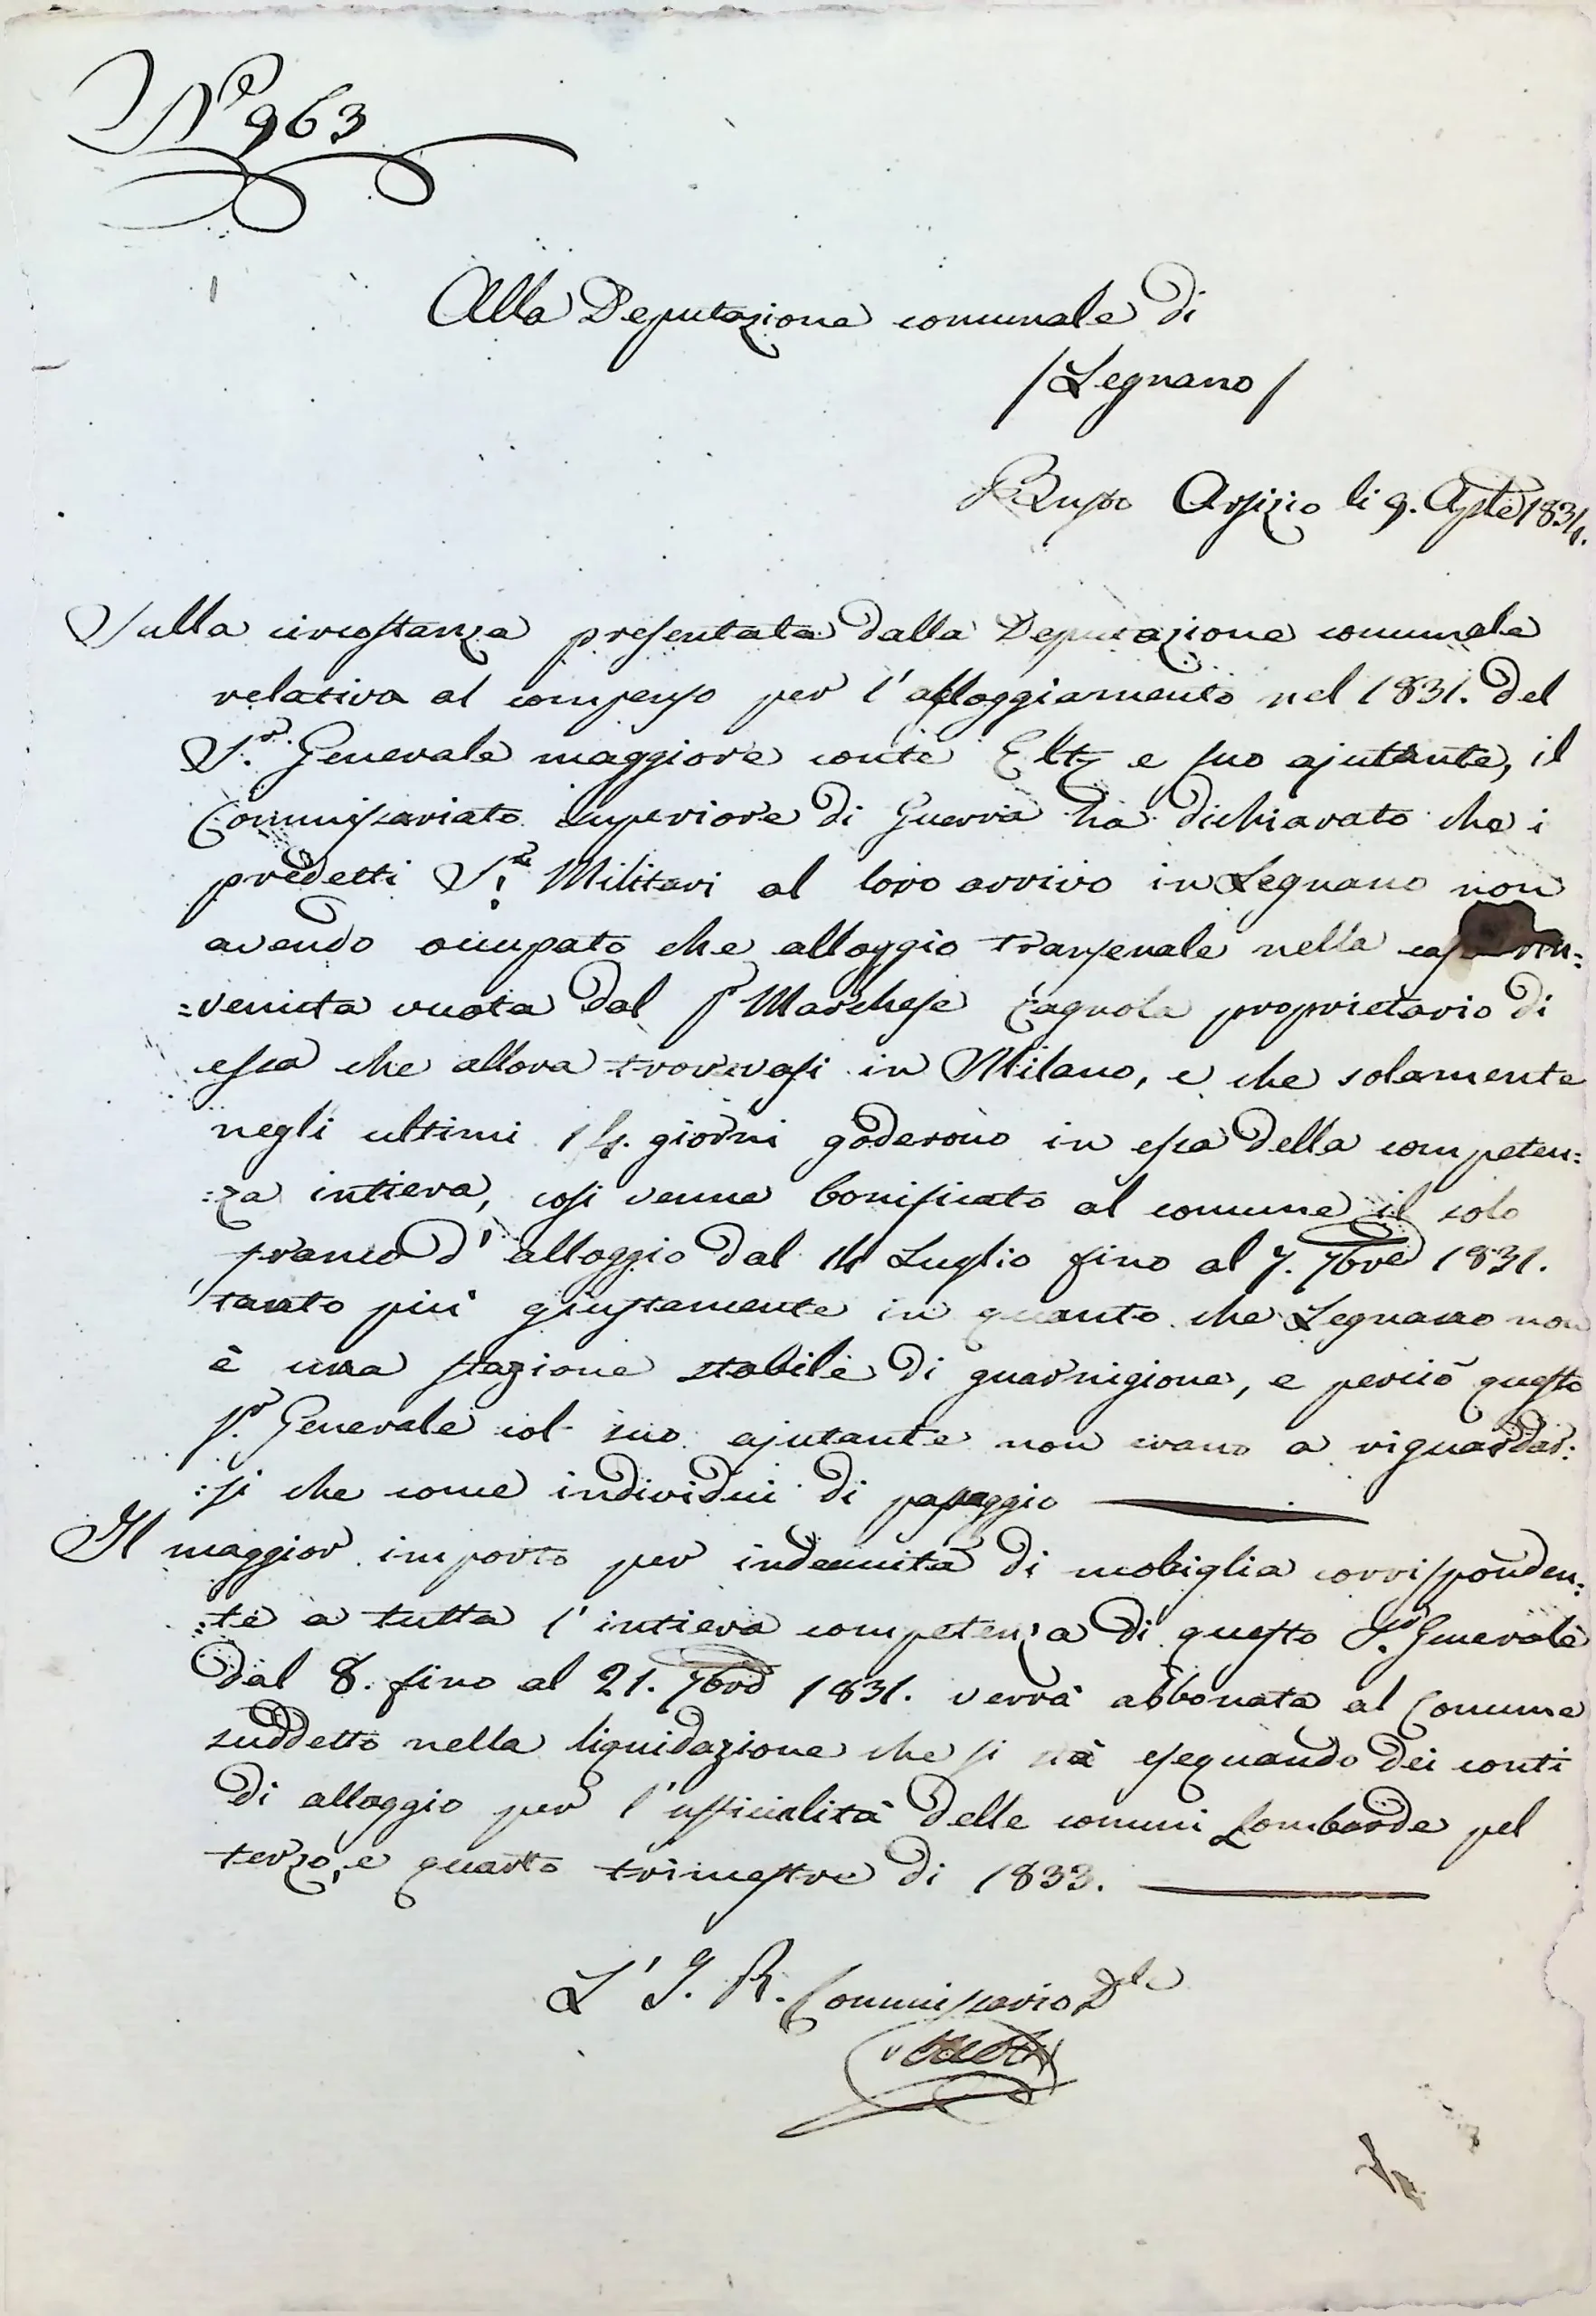 N.º 963
Alla Deputazione comunale di
/Legnano/
Busto Arsizio li 9. Aple 1834.
Sulla circostanza presentata dalla Deputazione comunale
relativa al compenso per l'alloggiamento nel 1831. del
S.r Generale maggiore conte Eltz e suo ajutante, il
Commissariato Superiore di Guerra ha dichiarato che i
predetti S.ri Militari al loro arrivo in Legnano non
avendo occupato che alloggio transenale nella casa rin=
=venuta vuota dal S.r Marchese Cagnola proprietario di
essa che allora trovavasi in Milano, e che solamente
negli ultimi 14. giorni goderono in essa della competen=
=za intiera, così venne bonificato al comune il solo
tranco d'alloggio dal 14 Luglio fino al 7. 7bre 1831.
tanto più giustamente in quanto che Legnano non
è una stazione stabile di guarnigione, e perciò questo
S.r Generale col suo ajutante non erano a riguardar=
=si che come individui di passaggio
Il maggior importo per indennità di mobiglia corrisponden=
=te a tutta l'intiera competenza di questo S.r Generale
dal 8. fino al 21. 7bre 1831. verrà abbonata al Comune
suddetto nella liquidazione che si stà eseguando dei conti
di alloggio per l'ufficialità delle comuni Lombarde pel
terzo, e quarto trimestre di 1833.
L'I. R. Commissario Dle